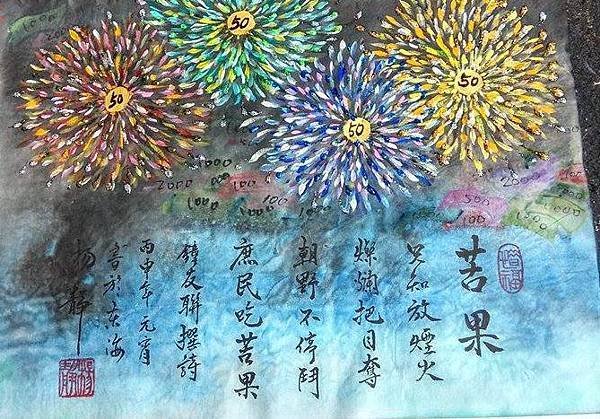 50
50
50
50
1000
2000
100
100
1000
500
100
2000
苦果
只知放煙火
燦爛把目奪
朝野不停鬥
庶民吃苦果
鐘友聯撰詩
丙申年元宵
書於東海
楊靜